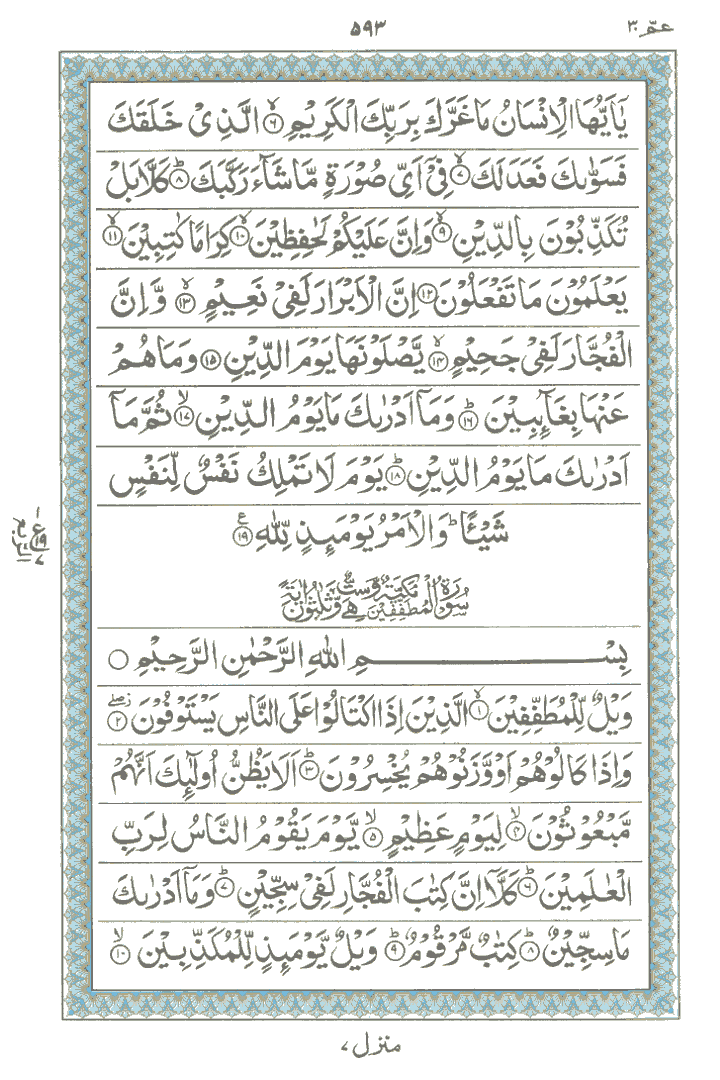 عمّ ۳۰
۵۹۳
يٰۤاَيُّهَا الْاِنْسَانُ مَا غَرَّكَ بِرَبِّكَ الْكَرِيْمِۙ‏ ﴿۶﴾ الَّذِىْ خَلَقَكَ
فَسَوّٰٮكَ فَعَدَلَـكَۙ‏ ﴿۷﴾ فِىْۤ اَىِّ صُوْرَةٍ مَّا شَآءَ رَكَّبَكَؕ‏ ﴿۸﴾ كَلَّا بَلْ
تُكَذِّبُوْنَ بِالدِّيْنِۙ‏ ﴿۹﴾ وَاِنَّ عَلَيْكُمْ لَحٰـفِظِيْنَۙ‏ ﴿۱۰﴾ كِرَامًا كٰتِبِيْنَۙ‏ ﴿۱۱﴾
يَعْلَمُوْنَ مَا تَفْعَلُوْنَ‏ ﴿۱۲﴾ اِنَّ الْاَبْرَارَ لَفِىْ نَعِيْمٍۙ‏ ﴿۱۳﴾ وَّاِنَّ
الْفُجَّارَ لَفِىْ جَحِيْمٍۙ‏ ﴿۱۴﴾ يَّصْلَوْنَهَا يَوْمَ الدِّيْنِ‏ ﴿۱۵﴾ وَمَا هُمْ
عَنْهَا بِغَآٮِٕبِيْنَؕ‏ ﴿۱۶﴾ وَمَاۤ اَدْرٰٮكَ مَا يَوْمُ الدِّيْنِۙ‏ ﴿۱۷﴾ ثُمَّ مَاۤ
اَدْرٰٮكَ مَا يَوْمُ الدِّيْنِؕ‏ ﴿۱۸﴾ يَوْمَ لَا تَمْلِكُ نَفْسٌ لِّنَفْسٍ
شَيْـًٔـاؕ وَالْاَمْرُ يَوْمَٮِٕذٍ لِّلّٰهِ ﴿۱۹﴾ ع
ع ۱۹ ۷
الربع
سُوْرَةُ الْمُطَفِّفِيْنَ مَكِّيَّةٌ وَّهِىَ سِتٌّ وَّثَلٰثُوْنَ اٰيَةً
بِسْمِ اللّٰهِ الرَّحْمٰنِ الرَّحِيْمِ ○
وَيْلٌ لِّلْمُطَفِّفِيْنَۙ‏ ﴿۱﴾ الَّذِيْنَ اِذَا اكْتَالُوْا عَلَى النَّاسِ يَسْتَوْفُوْنَ ﴿۲﴾
وَاِذَا كَالُوْهُمْ اَوْ وَّزَنُوْهُمْ يُخْسِرُوْنَؕ‏ ﴿۳﴾ اَلَا يَظُنُّ اُولٰٓٮِٕكَ اَنَّهُمْ
مَّبْعُوْثُوْنَۙ‏ ﴿۴﴾ لِيَوْمٍ عَظِيْمٍۙ‏ ﴿۵﴾ يَّوْمَ يَقُوْمُ النَّاسُ لِرَبِّ
الْعٰلَمِيْنَؕ‏ ﴿۶﴾ كَلَّاۤ اِنَّ كِتٰبَ الْفُجَّارِ لَفِىْ سِجِّيْنٍؕ‏ ﴿۷﴾ وَمَاۤ اَدْرٰٮكَ
مَا سِجِّيْنٌؕ‏ ﴿۸﴾ كِتٰبٌ مَّرْقُوْمٌؕ‏ ﴿۹﴾ وَيْلٌ يَّوْمَٮِٕذٍ لِّلْمُكَذِّبِيْنَۙ‏ ﴿۱۰﴾
منزل ۷